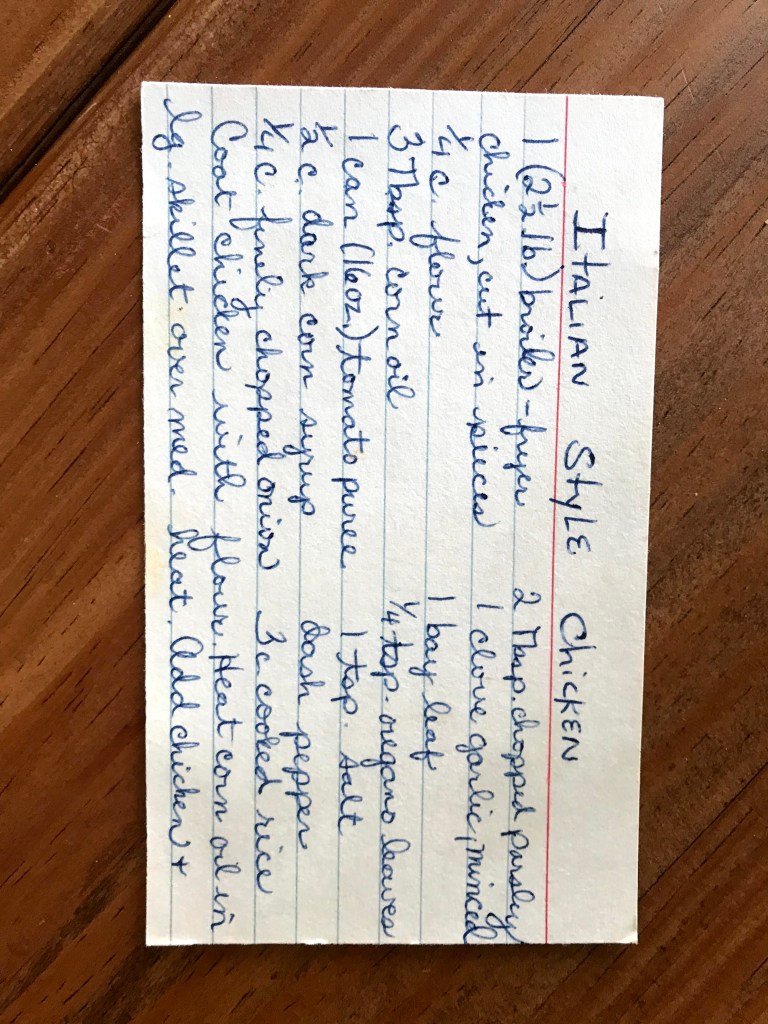 ITALIAN STYLE CHICKEN
1 (2½ lb.) broiler-fryer 2 Tbsp. chopped parsley
chicken, cut in pieces 1 clove garlic, minced
¼ c. flour 1 bay leaf
3 Tbsp. corn oil ¼ tsp. oregano leaves
1 can (16 oz.) tomato puree 1 tsp. salt
½ c. dark corn syrup dash pepper
¼ c. finely chopped onion 3 c. cooked rice
Coat chicken with flour. Heat corn oil in
lg. skillet over med. heat. Add chicken +